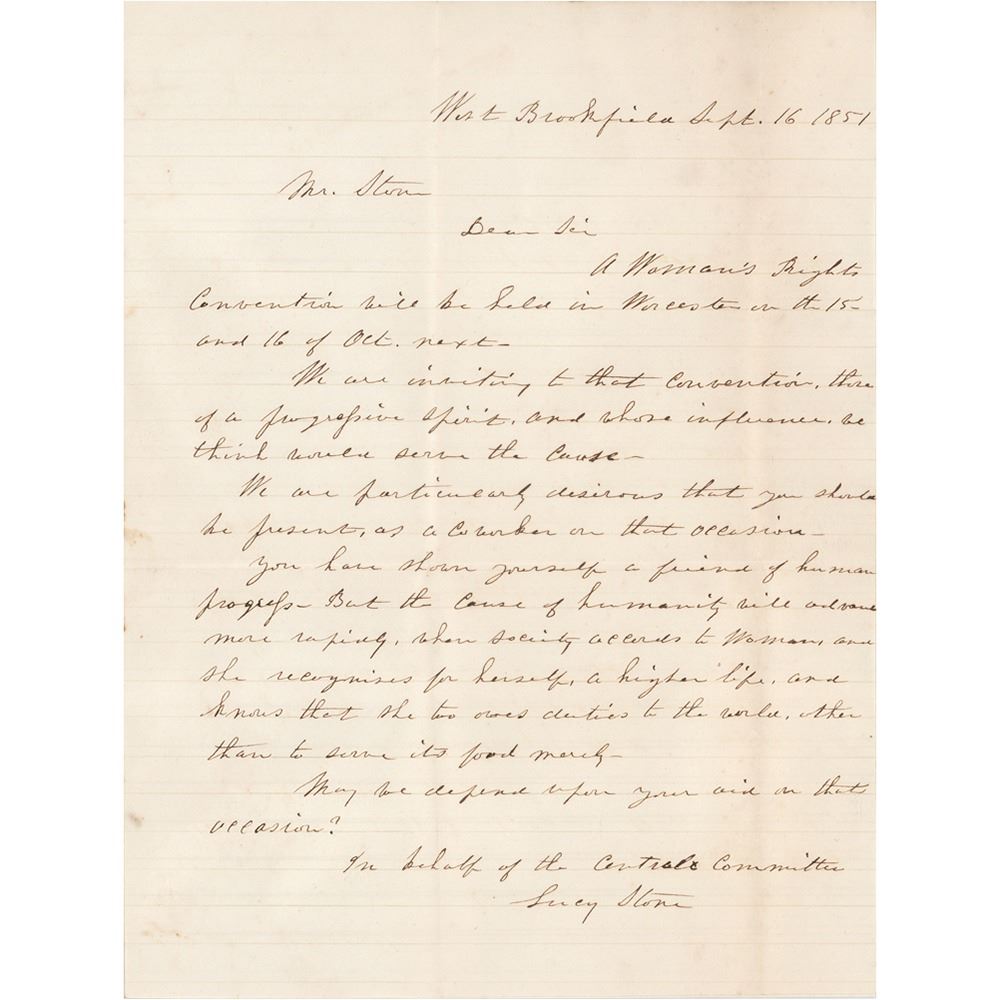 West Brookfield Sept. 16 1851
Mr. Stone
Dear Sir
A Woman's Rights
Convention will be held in Worcester on the 15
and 16 of Oct. next—
We are inviting to that convention, those
of a progressive spirit, and whose influence, we
think would serve the cause—
We are particularly desirous that you should
be present, as a coworker on that occasion—
You have shown yourself a friend of human
progress— But the cause of humanity will advance
more rapidly, when society accords to Woman, and
she recognises for herself, a higher life, and
knows that she too owes duties to the world, other
than to serve its food merely—
May we depend upon your aid on that
occasion?
In behalf of the Central Committee
Lucy Stone